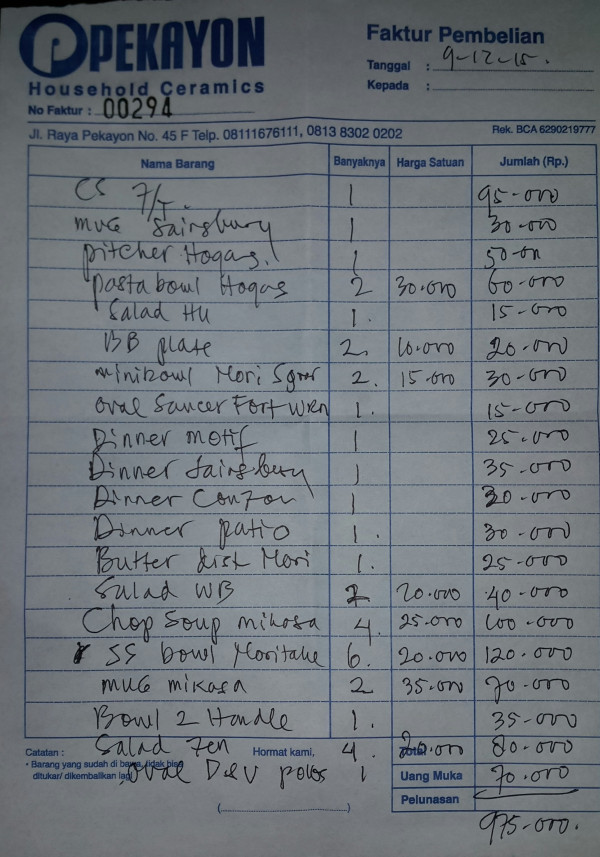 PEKAYON
Household Ceramics
No Faktur : 00294
Faktur Pembelian
Tanggal : 9-12-15.
Kepada :
Jl. Raya Pekayon No. 45 F Telp. 08111676111, 0813 8302 0202 Rek. BCA 6290219777
Nama Barang Banyaknya Harga Satuan Jumlah (Rp.)
CS 7/T. 1 95-000
mug Sainsbury 1 30-000
pitcher Hogas. 1 50-00
pasta bowl Hogas 2 30.000 60-000
Salad Hu 1. 15-000
BB plate 2. 10.000 20-000
minibowl Nori 2. 15.000 30-000
oval Saucer Fort 1. 15-000
Dinner motif 1 25-000
Dinner Sainsbury 1 35-000
Dinner 1 30-000
Dinner patio 1. 30-000
Butter dish Nori 1. 25-000
Salad WB 2 20.000 40-000
Chop Soup mikasa 4. 25.000 100-000
SS bowl Noritake 6. 20.000 120-000
mug mikasa 2 35.000 70-000
Bowl 2 Handle 1. 35-000
Salad Zen 4. 20.000 80-000
Catatan : Hormat kami, Total
• Barang yang sudah di bawa, tidak bisa
ditukar/ dikembalikan lagi
oval polos 1 Uang Muka 70.000
Pelunasan
(..............................)
975-000.